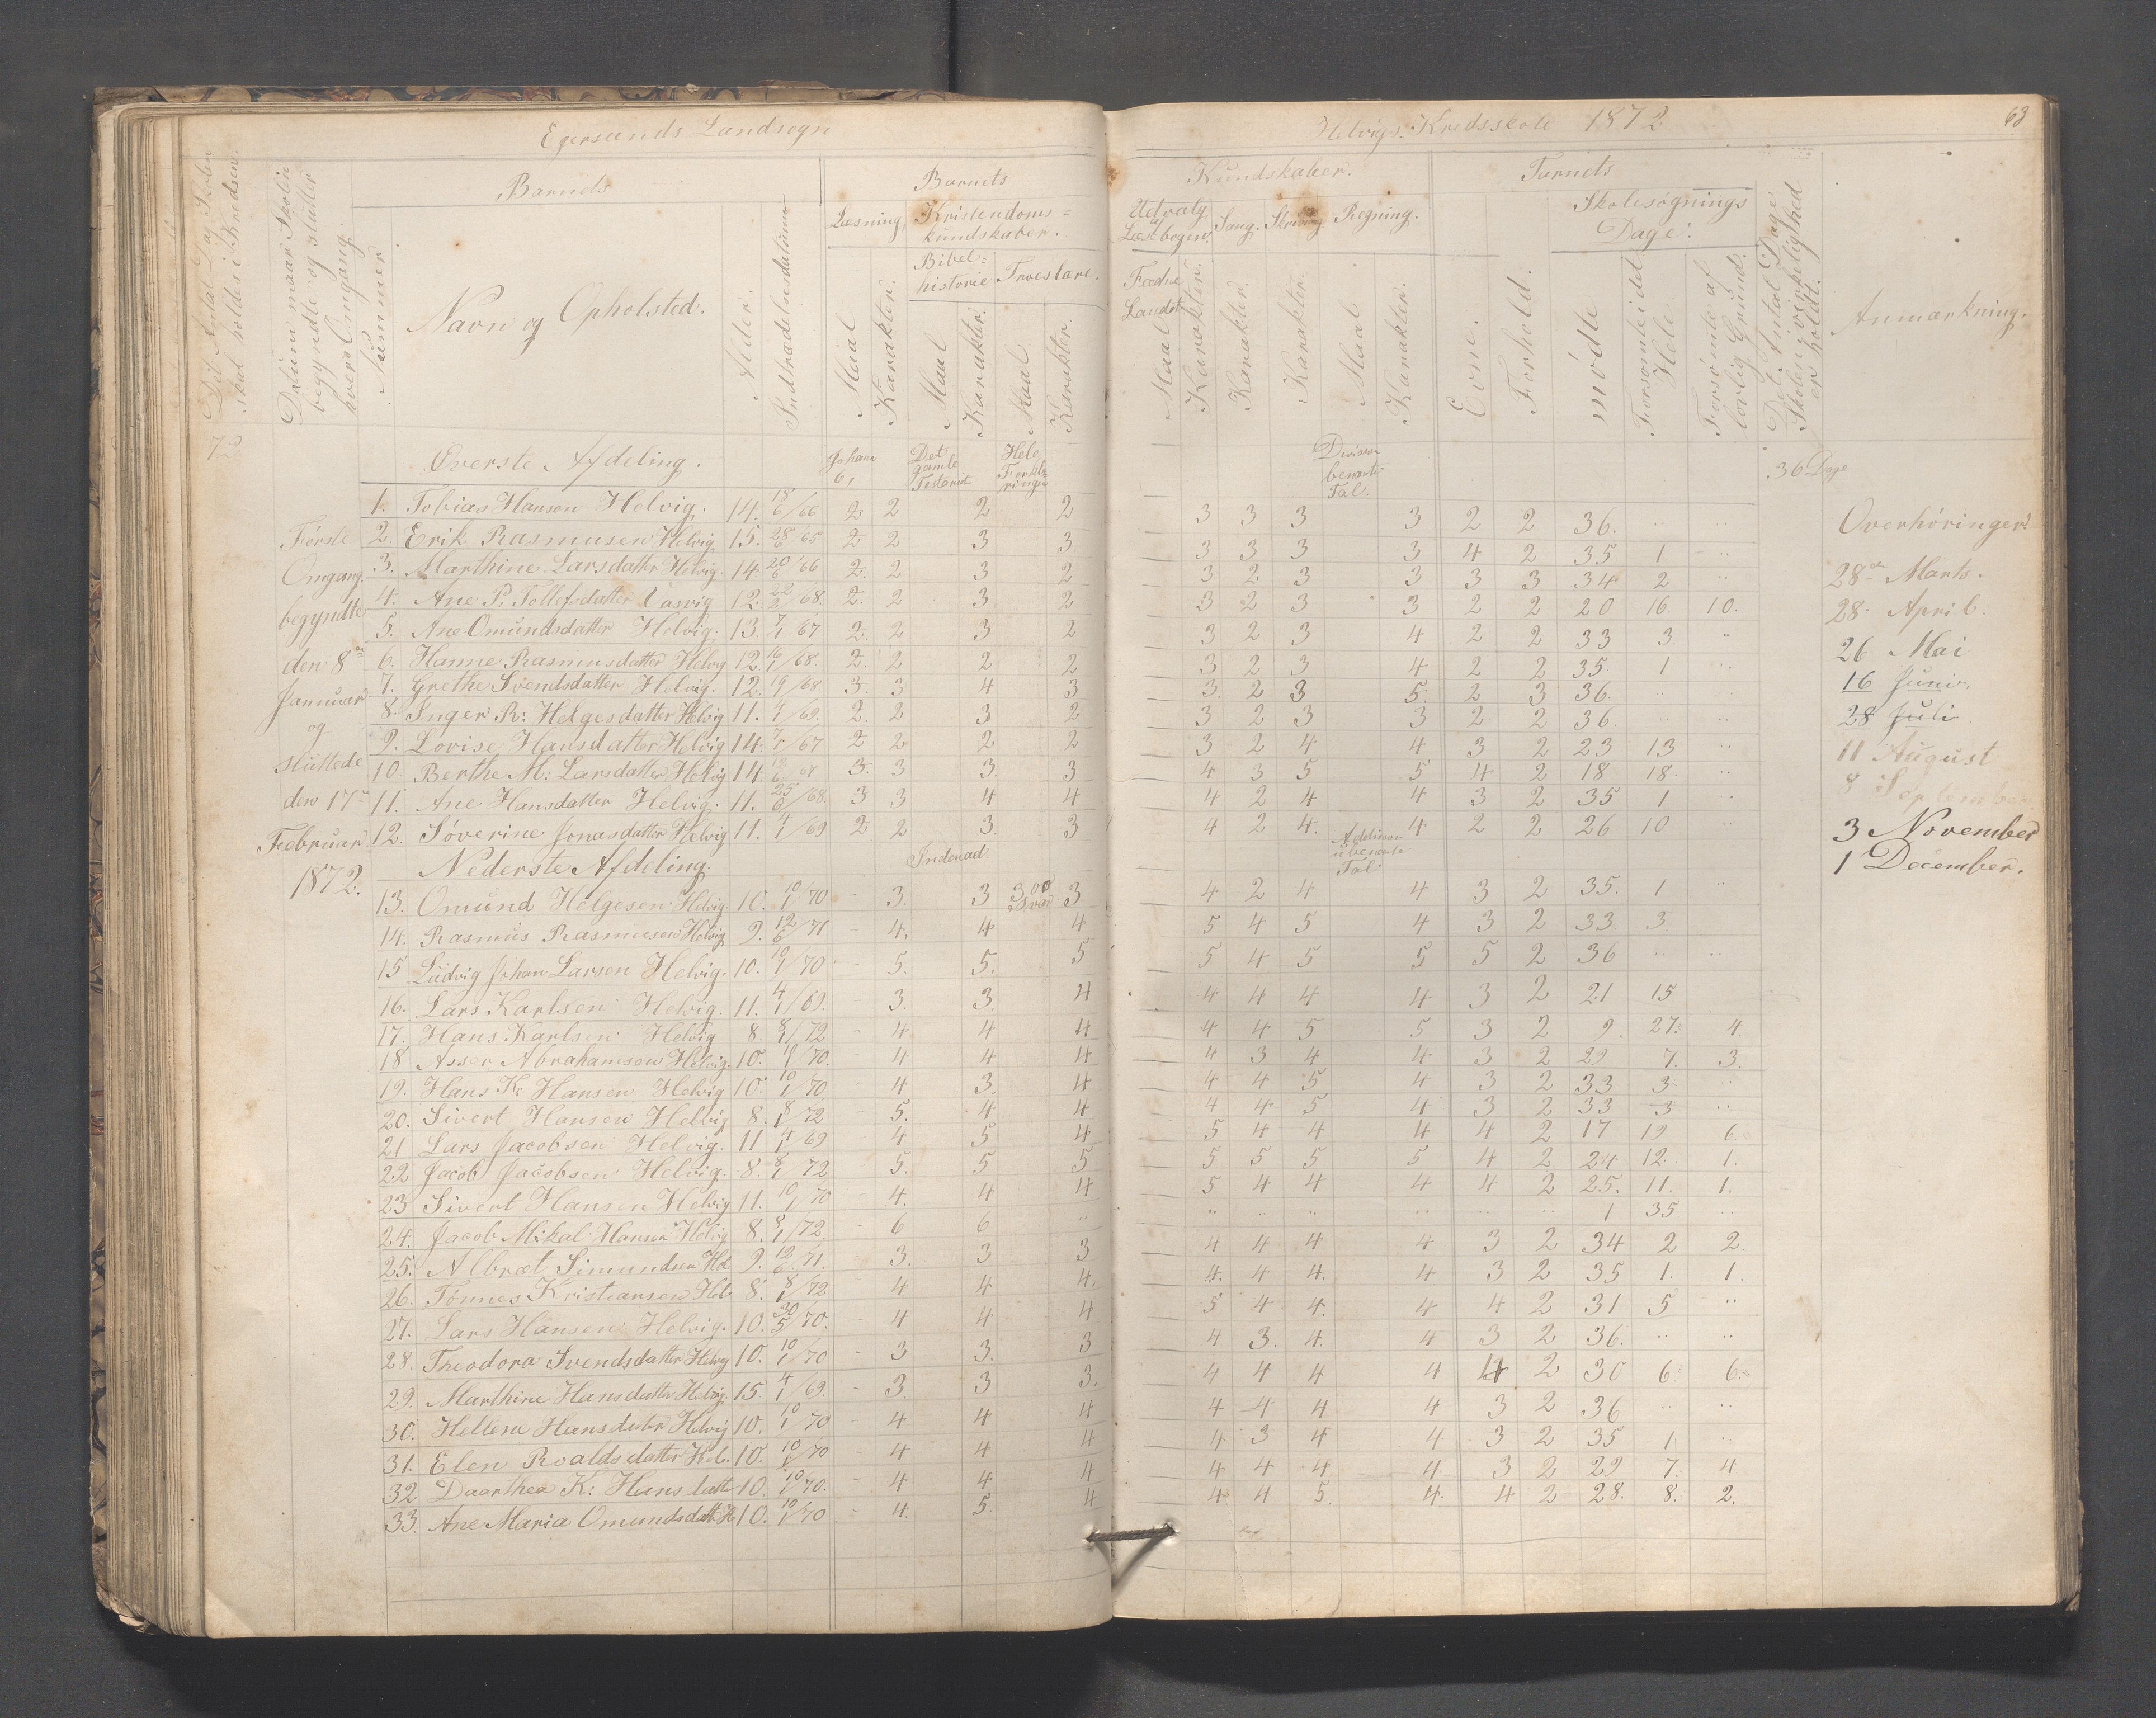 Egersunds Landsogn
Helvigs Kredsskole 1872
63
Det Antal Dage Skolen skal holdes i Kredsen.
Datum naar Skolen begyndte og slutter hvers Omgang.
Nummer
Barnets
Navn og Opholsted.
Alder.
Indtrædelsesdatum
Barnets
Læsning,
Kristendoms=
kundskaber.
Bibel=
historie
Troeslare.
Maal
Karakter.
Maal
Karakter.
Maal
Karakter.
Kundskaber.
Udvalg af
Læsebogen.
Sang.
Skrivning
Regning.
Maal
Karakter.
Karakter.
Karakter.
Maal
Karakter.
Evne.
Forhold.
Skolesøgnings
Dage.
mödte
Forsømte i det Hele.
Forsømte af lovlig Grund.
Det Antal Dage Skolen i virkelighed er holdt.
Anmarkning.
72
Øverste Afdeling.
Johann 6,
Det gamle Testament
Hele Forklaringen
Division benævnte Tal.
36 Dage
Første
Omgang
begyndte
den 8de
Januar
og
sluttede
den 17de
Februar
1872.
1. Tobias Hansen Helvig. 14. 18/6/66 2 2 2 2 3 3 3 3 2 2 36. .. ..
2. Erik Rasmusen Helvig 15. 28/6/65 2 2 3 3 3 3 3 3 4 2 35 1 ..
3. Marthine Larsdatter Helvig. 14. 20/6/66 2. 2 3 2 3 2 3 3 3 3 34 2 ..
4. Ane P: Tollefsdatter 12. 22/2/68. 2. 2 3 2 3 2 3 3 2 2 20 16. 10.
5. Ane Omundsdatter Helvig. 13. 7/1/67 2. 2 3 2 3 2 3 4 2 2 33 3. ..
6. Hanne Rasmusdatter Helvig 12. 16/1/68. 2. 2 2 2 3 2 3 4 2 2 35. 1 ..
7. Grethe Svendsdatter Helvig. 12. 19/68. 3. 3 4 3 3. 2 3 5. 2 3 36. ..
8. Inger R: Helgesdatter Helvig 11. 4/1/69. 2. 2 3 2 3 2 3 3 2 2 36. .. ..
9. Lovise Hansdatter Helvig 14. 7/1/67 2 2 2 2 3 2 4 4 3 2 23 13 ..
10 Berthe M: Larsdatter Helvig 14 3. 3 3. 3 4 3 5 5 4 2 18 18. ..
11. Ane Hansdatter Helvig. 11. 25/6/68. 3 3 4 4 4 2 4 4 3 2 35 1 ..
12. Söverine Jonasdatter Helvig 11. 4/1/69 2 2 3. 3 4 2 4. 4 2 2 26 10 ..
Nederste Afdeling.
Indenad
Addition ubenævnte Tal
13. Omund Helgesen Helvig. 10. 10/1/70 - 3. 3 3 4 2 4 4 3 2 35. 1 ..
14. Rasmus Rasmusen Helvig 9. 12/6/71 - 4. 4 4 5 4 5 4 3 2 33 3.
15 Ludvig Johan Larsen Helvig. 10. 10/1/70 - 5. 5. 5 5 4 5 5 5 2 36 .. ..
16. Lars Karlsen Helvig. 11. 4/1/69. - 3. 3. 4 4 4 4 4 3 2 21 15
17. Hans Karlsen Helvig 8. 8/1/72 - 4 4 4 4 4 5 5 3 2 9. 27. 4
18 Asser Abrahamsen Helvig. 10. 10/1/70. - 4 4 4 4 3 4 4 3 2 29 7. 3.
19. Hans K: Hansen Helvig 10. 10/1/70 - 4 3. 4 4 4 5 4 3 2 33 3. ..
20. Sivert Hansen Helvig 8. 8/1/72 - 5. 4 4 4 4 5 4 3 2 33 3 ..
21 Lars Jacobsen Helvig. 11 4/1/69 - 4 5 4 5 4 4 4 4 2 17 19 6.
22 Jacob Jacobsen Helvig. 8. 8/1/72 - 5. 5 5 5 5 5 5 4 2 24 12. 1.
23 Sivert Hansen Helvig 11. 10/1/70 - 4. 4 4 5 4 4 4 4 2 25. 11. 1.
24. Jacob Mikal Hansen Helvig 8. 8/1/72. - 6 6 .. .. .. .. .. .. .. 1 35 ..
25. Albræt Simundsen Hel 9. 12/6/71. - 3. 3 3 4 4 4 4 3 2 34 2 2.
26. Tönnes Kristiansen Hel 8. 8/1/72 4 4 4. 4. 4 4. 4 3 2 35 1. 1.
27. Lars Hansen Helvig. 10. 30/5/70. - 4 4 4 5 4 4. 4 4 2 31 5 ..
28. Theodora Svendsdatter Helvig 10. 10/1/70 - 3 3. 3 4 3. 4. 4 3 2 36. .. ..
29. Marthine Hansdatter Helvig. 15. 4/1/69. - 3. 3 3. 4 4 4 4 4 2 30 6 6.
30. Hellene Hansdatter Helvig 10. 10/1/70 - 4 4 4 4 4 4 4 3 2 36 .. ..
31. Elen Roaldsdatter Hel. 10. 10/1/70 - 4 4 4 4 3 4 4 3 2 35 1 ..
32 Daarthea K: Hansdatter 10. 10/1/70. - 4 4 4 4 4 4 4 3 2 29 7. 4
33. Ane Maria Omundsdatter H 10. 10/1/70 - 4. 5. 4 4 4 5. 4. 4 2 28. 8. 2.
Overhöringer
28de Marts.
28. April.
26 Mai
16 Juni.
28 Juli
11 August
8 September
3 November
1 December.